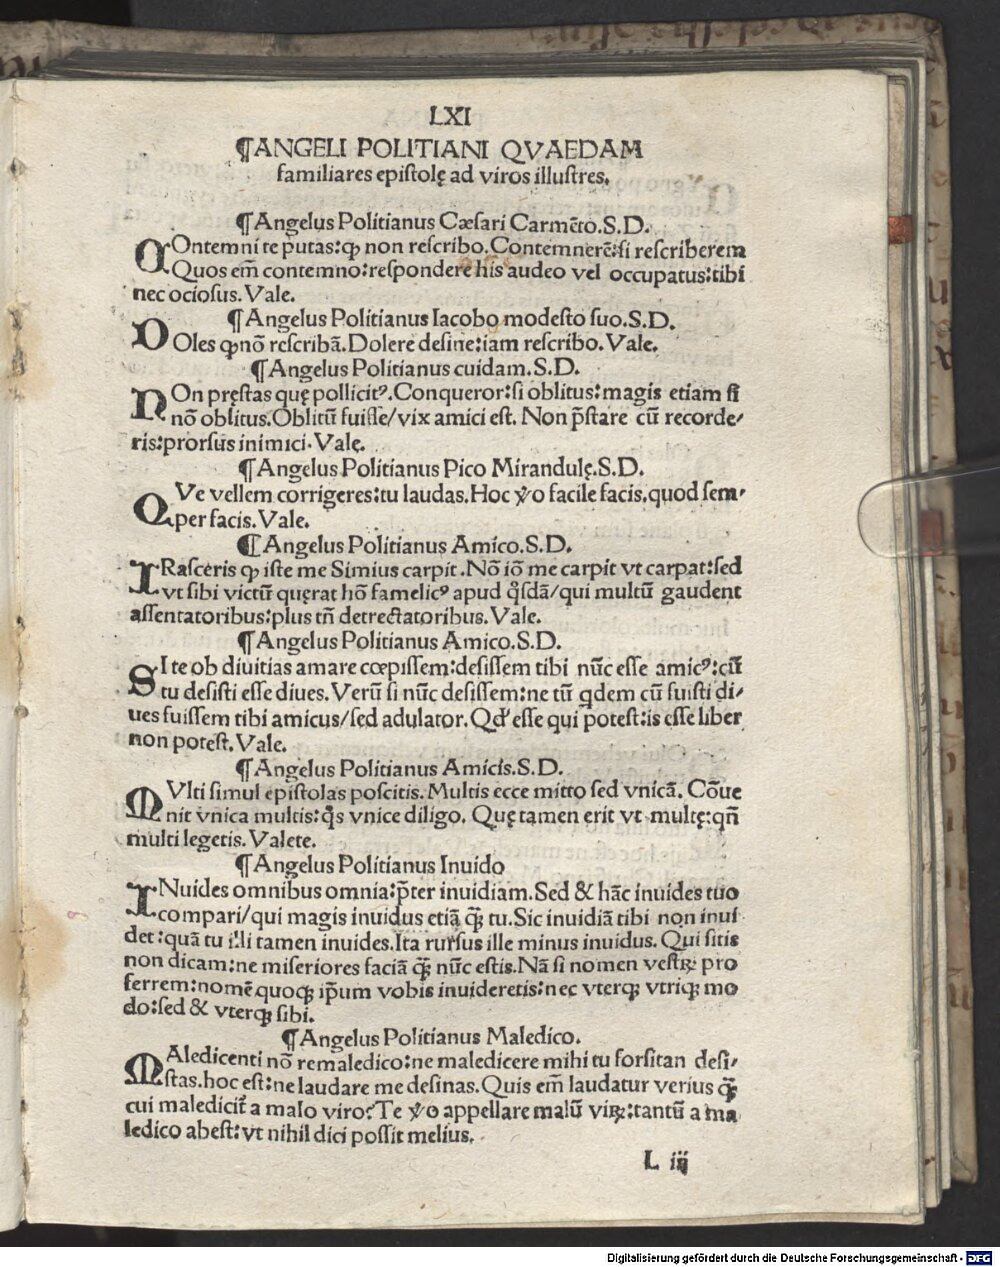 LXI
¶ANGELI POLITIANI QVAEDAM
familiares epistolę ad viros illustres.
¶Angelus Politianus Cæsari Carmēto.S.D.
COntemni te putas:ꝙ non rescribo.Contemnerē:si rescriberem
Quos em̄ contemno:respondere his audeo vel occupatus:tibi
nec ociosus. Vale.
¶Angelus Politianus Iacobo modesto suo.S.D.
DOles ꝙ nō rescribā.Dolere desine:iam rescribo. Vale.
¶Angelus Politianus cuidam.S.D.
NOn pręstas quę pollicitꝰ.Conqueror:si oblitus:magis etiam si
nō oblitus.Oblitū fuisse/vix amici est. Non p̄stare cū recorde/
ris:prorsus inimici. Vale.
¶Angelus Politianus Pico Mirandulę.S.D.
QVe vellem corrigeres:tu laudas.Hoc v̊o facile facis,quod sem/
per facis. Vale.
¶Angelus Politianus Amico.S.D.
IRasceris ꝙ iste me Simius carpit.Nō iō me carpit vt carpat:sed
vt sibi victū quęrat hō famelicꝰ apud q̊sdā/qui multū gaudent
assentatoribus:plus tn̄ detrectatoribus. Vale.
¶Angelus Politianus Amico.S.D.
SI te ob diuitias amare cœpissem:desissem tibi nūc esse amicꝰ:cū
tu desisti esse diues. Verū si nūc desissem:ne tū qdem cū fuisti di/
ues fuissem tibi amicus/sed adulator. Qd' esse qui potest:is esse liber
non potest. Vale.
¶Angelus Politianus Amicis.S.D.
MVlti simul epistolas poscitis. Multis ecce mitto sed vnicā. Cōue
nit vnica multis:q̊s vnice diligo. Quę tamen erit vt multę:qn̄
multi legetis. Valete.
¶Angelus Politianus Inuido
INuides omnibus omnia:p̄ter inuidiam.Sed & hāc inuides tuo
compari/qui magis inuidus etiā q̄ꝫ tu. Sic inuidiā tibi non inui
det:quā tu illi tamen inuides.Ita rursus ille minus inuidus. Qui sitis
non dicam:ne miseriores faciā q̄ꝫ nūc estis.Nā si nomen vestꝝ pro
ferrem:nomē quoqꝫ ip̄um vobis inuideretis:nec vterqꝫ vtriqꝫ mo
do:sed & vterqꝫ sibi.
¶Angelus Politianus Maledico.
MAledicenti nō remaledico:ne maledicere mihi tu forsitan desi/
stas.hoc est:ne laudare me desinas. Quis em̄ laudatur verius q̄ꝫ
cui maledicit̄ a malo viro?Te v̊o appellare malū viꝝ:tantū a ma
ledico abest:vt nihil dici possit melius.
L iij
Digitalisierung gefördert durch die Deutsche Forschungsgemeinschaft - DFG